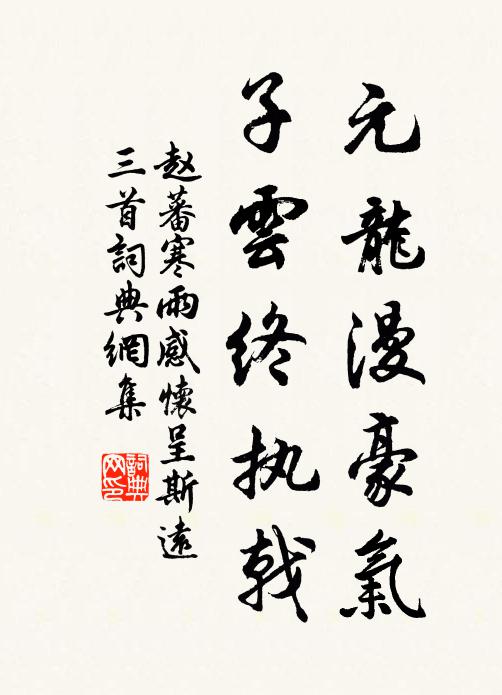 元龍漫豪氣
子雲終执戟
赵蕃寒雨感懷呈斯遠
三首詞典網集
詞典
网印